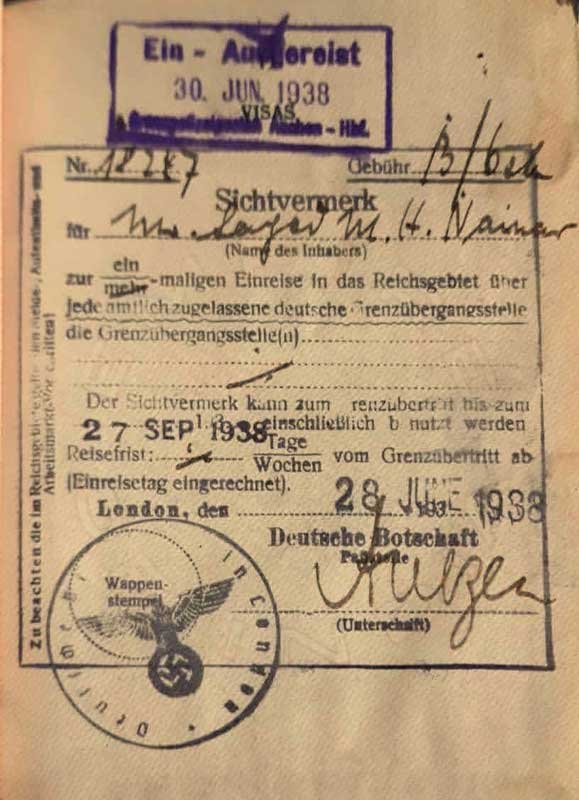 Ein - Ausgereist
30. JUN. 1938
VISAS
Aachen - Hbf.
Nr. 18247 Gebühr
Sichtvermerk
für Mr. Sayed M. H. Nainar
(Name des Inhabers)
zur ein
mehr -maligen Einreise in das Reichsgebiet über
jede amtlich zugelassene deutsche Grenzübergangsstelle
die Grenzübergangsstelle(n)
Der Sichtvermerk kann zum renzübertritt bis zum
27 SEP 1938 einschließlich b nutzt werden
Reisefrist: Tage
Wochen vom Grenzübertritt ab
(Einreisetag eingerechnet).
28 JUNE 1938
London, den 193
Deutsche Botschaft
Paßstelle
(Unterschrift)
Wappen-
stempel
Deutsche in London
Zu beachten die im Reichsgebiet Melde-, Aufenthalts- und
Arbeitsmarkt